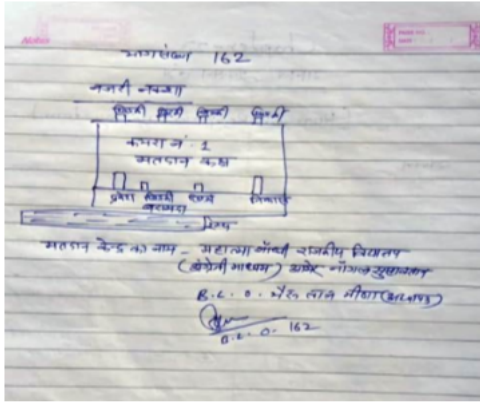 भाग संख्या 162
नजरी नक्शा
खिड़की खिड़की खिड़की खिड़की
कमरा नं. 1
मतदान कक्ष
प्रवेश खिड़की खिड़की निकास
बरामदा
रैम्प
मतदान केन्द्र का नाम - महात्मा गाँधी राजकीय विद्यालय
(अंग्रेजी माध्यम)
B.L.O. भैरू लाल मीणा (अध्यापक)
B.L.O. 162